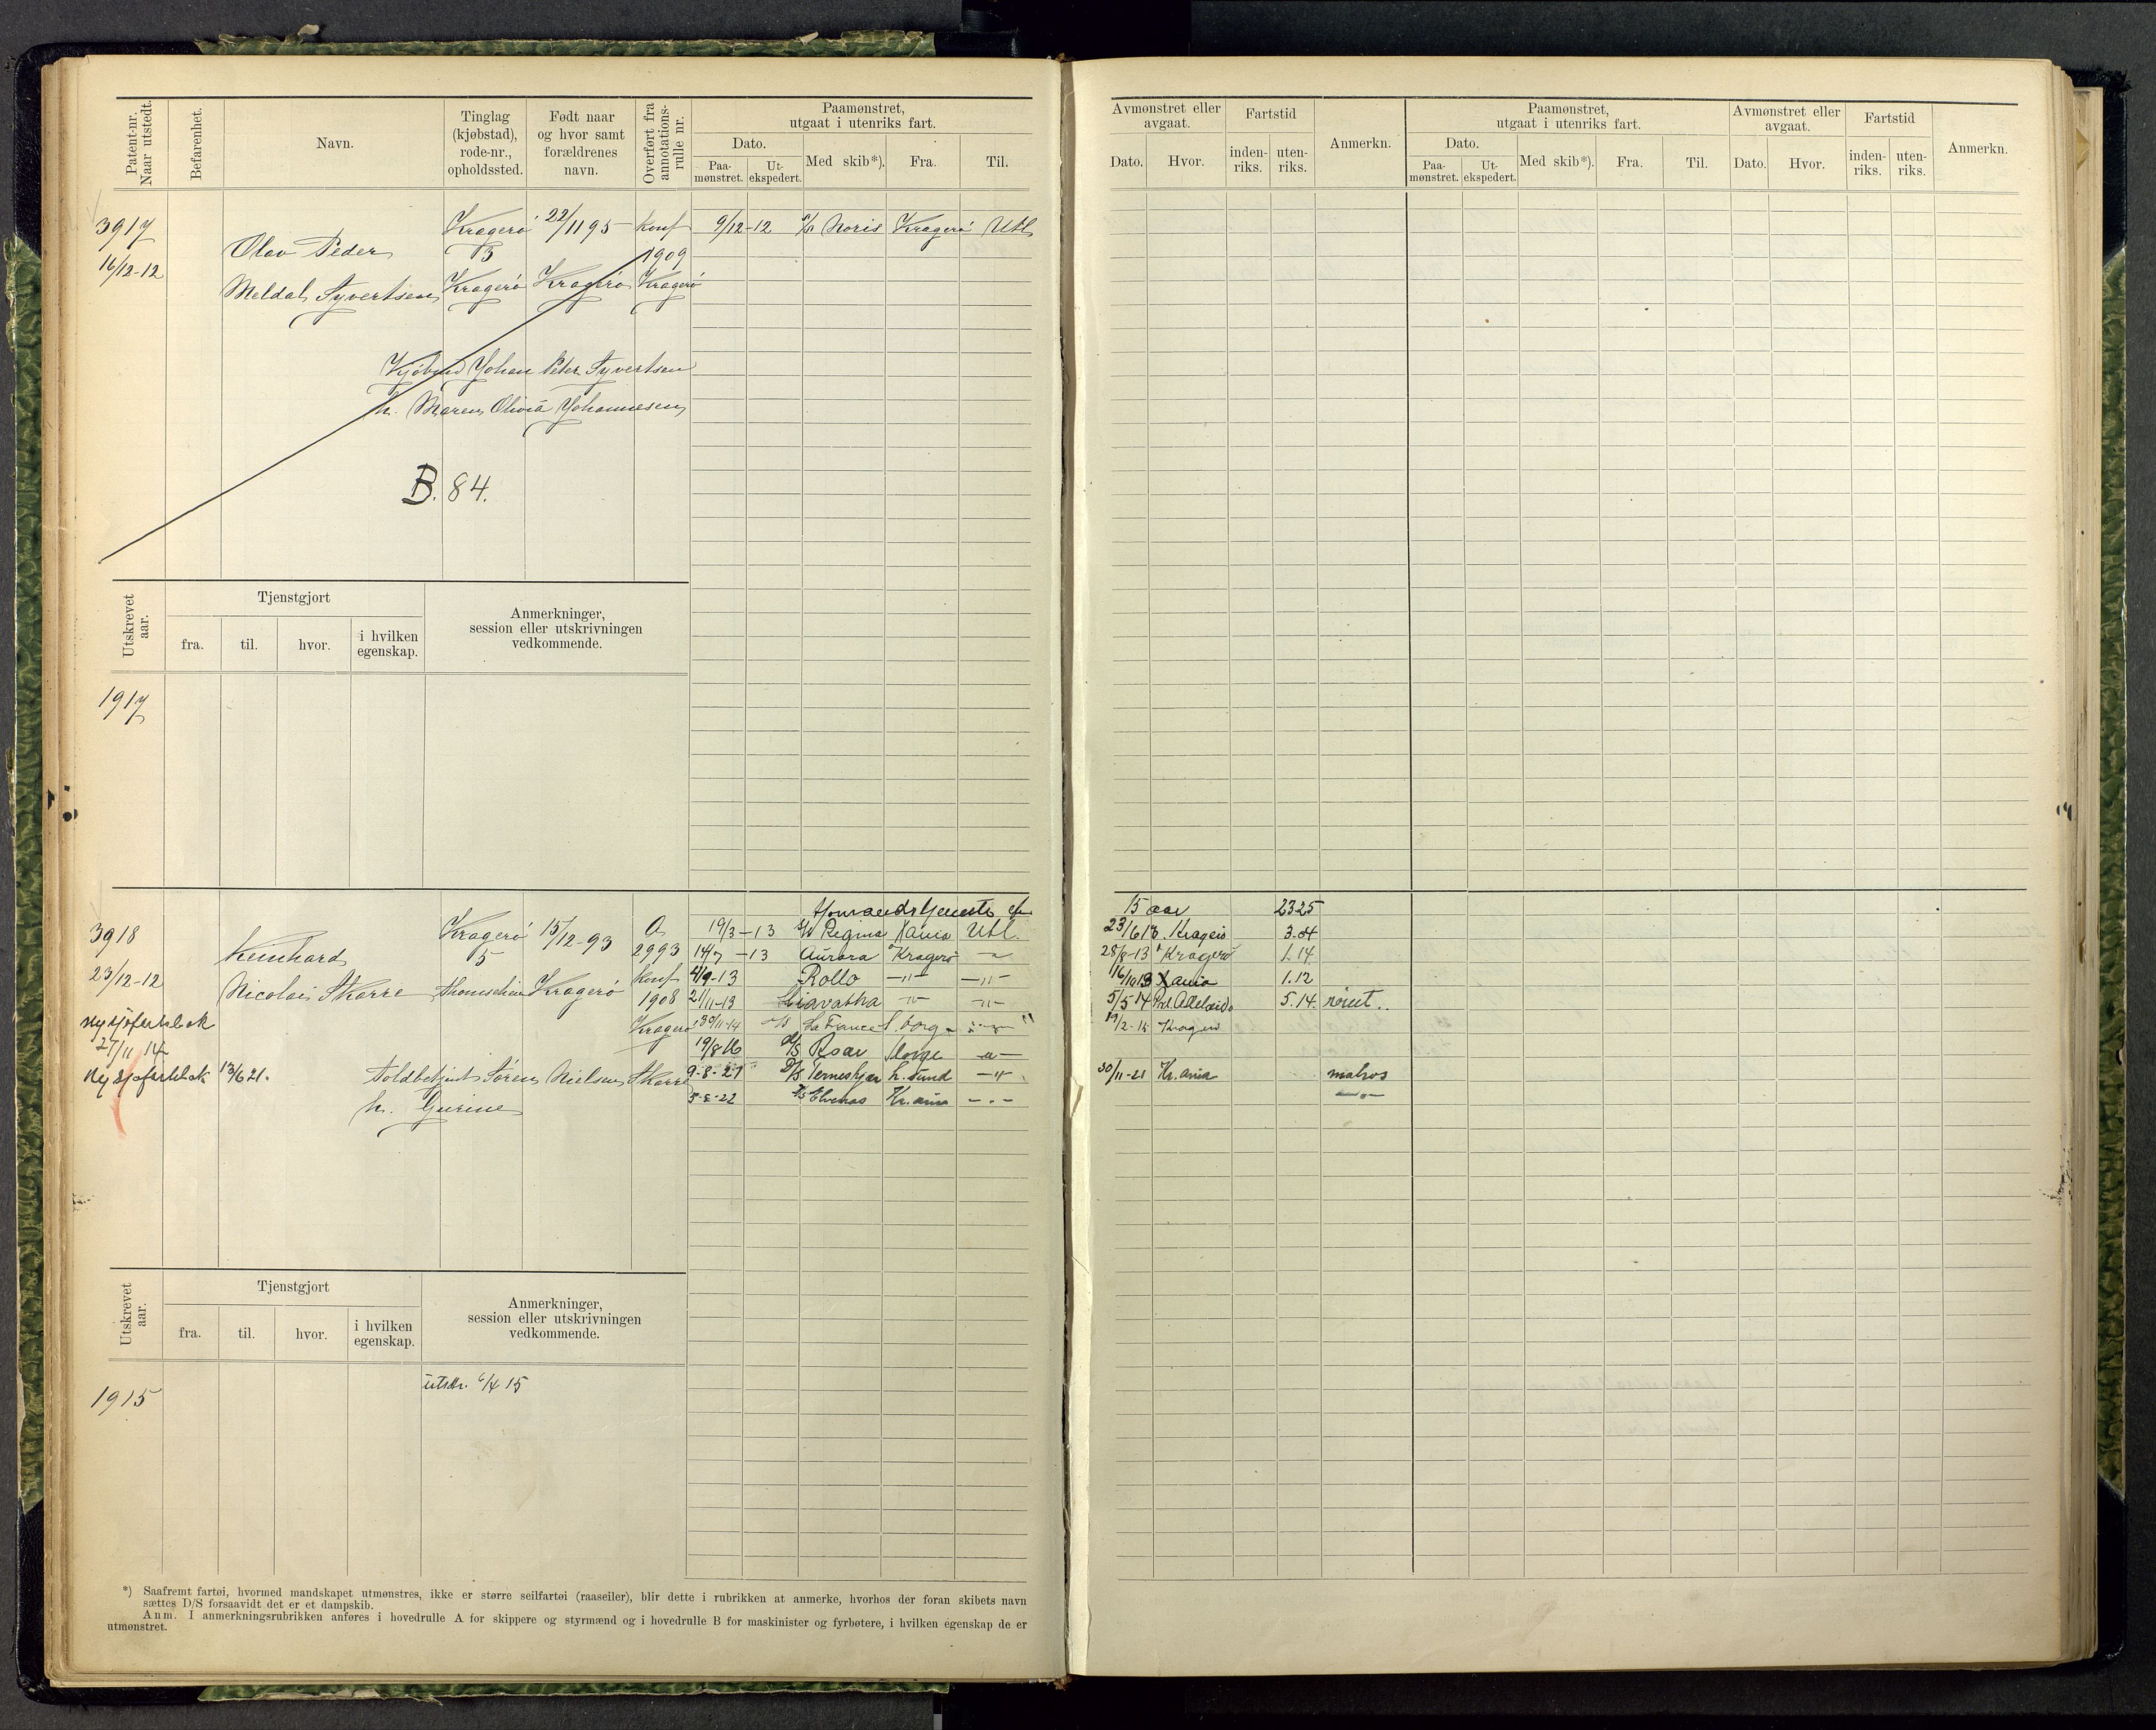 Patent-nr. Naar utstedt.
Befarenhet.
Navn.
Tinglag (kjøbstad), rode-nr., opholdssted.
Født naar og hvor samt forældrenes navn.
Overført fra annotations-rulle nr.
Paamønstret, utgaat i utenriks fart.
Dato.
Paa-mønstret.
Ut-ekspedert.
Med skib*).
Fra.
Til.
Avmønstret eller avgaat.
Dato.
Hvor.
Fartstid
inden-riks.
uten-riks.
Anmerkn.
Paamønstret, utgaat i utenriks fart.
Dato.
Paa-mønstret.
Ut-ekspedert.
Med skib*).
Fra.
Til.
Avmønstret eller avgaat.
Dato.
Hvor.
Fartstid
inden-riks.
uten-riks.
Anmerkn.
3917 Kragerø 22/11 95 Konf 9/12-12 Noris Kragerø Utl
Olav Peder B 1909
16/12-12
Meldal Syvertsen Kragerø Kragerø Kragerø
Johan Peter Syvertsen
h. Maren Olivia Johannesen
B. 84.
Utskrevet aar.
Tjenstgjort
fra. til. hvor. i hvilken egenskap.
Anmerkninger, session eller utskrivningen vedkommende.
1917
15 aar 23 25
3918 Kragerø 15/12-93 19/3-13 Regina Kania Utl. 23/6 13. Kragerø
Reinhard 5 2993 14/7-13 Aurora Kragerø 28/8-13 Kragerø 1.14
23/12-12 Konf 4/9-13 Rollo -"- -"- 16/10 13 Kania 1.12
Nicolai Skarre Kragerø 1908 21/11-13 Hiavatha -"- -"- 5/5 14 Port Adelaide 5.14. rømt.
Ny sjøfartsbok Kragerø 30/11-14 La France -"- 19/2-15 Kragerø
27/11 14 19/8 16 D/S Roar -"-
Ny sjøfartsbok 13/6 21. Toldbetjent Søren Nielsen Skarre 9-8-21 D/S Terneskjær L. sund -"- 30/11-21 Kr.ania matros
h. Gurine 5-5-22 Elvenas Kr.ania -"- -"-
Utskrevet aar.
Tjenstgjort
fra. til. hvor. i hvilken egenskap.
Anmerkninger, session eller utskrivningen vedkommende.
1915 utskr. 6/4 15
*) Saafremt fartøi, hvormed mandskapet utmønstres, ikke er større seilfartøi (raaseiler), blir dette i rubrikken at anmerke, hvorhos der foran skibets navn
sættes D/S forsaavidt det er et dampskib.
Anm. I anmerkningsrubrikken anføres i hovedrulle A for skippere og styrmænd og i hovedrulle B for maskinister og fyrbøtere, i hvilken egenskap de er
utmønstret.